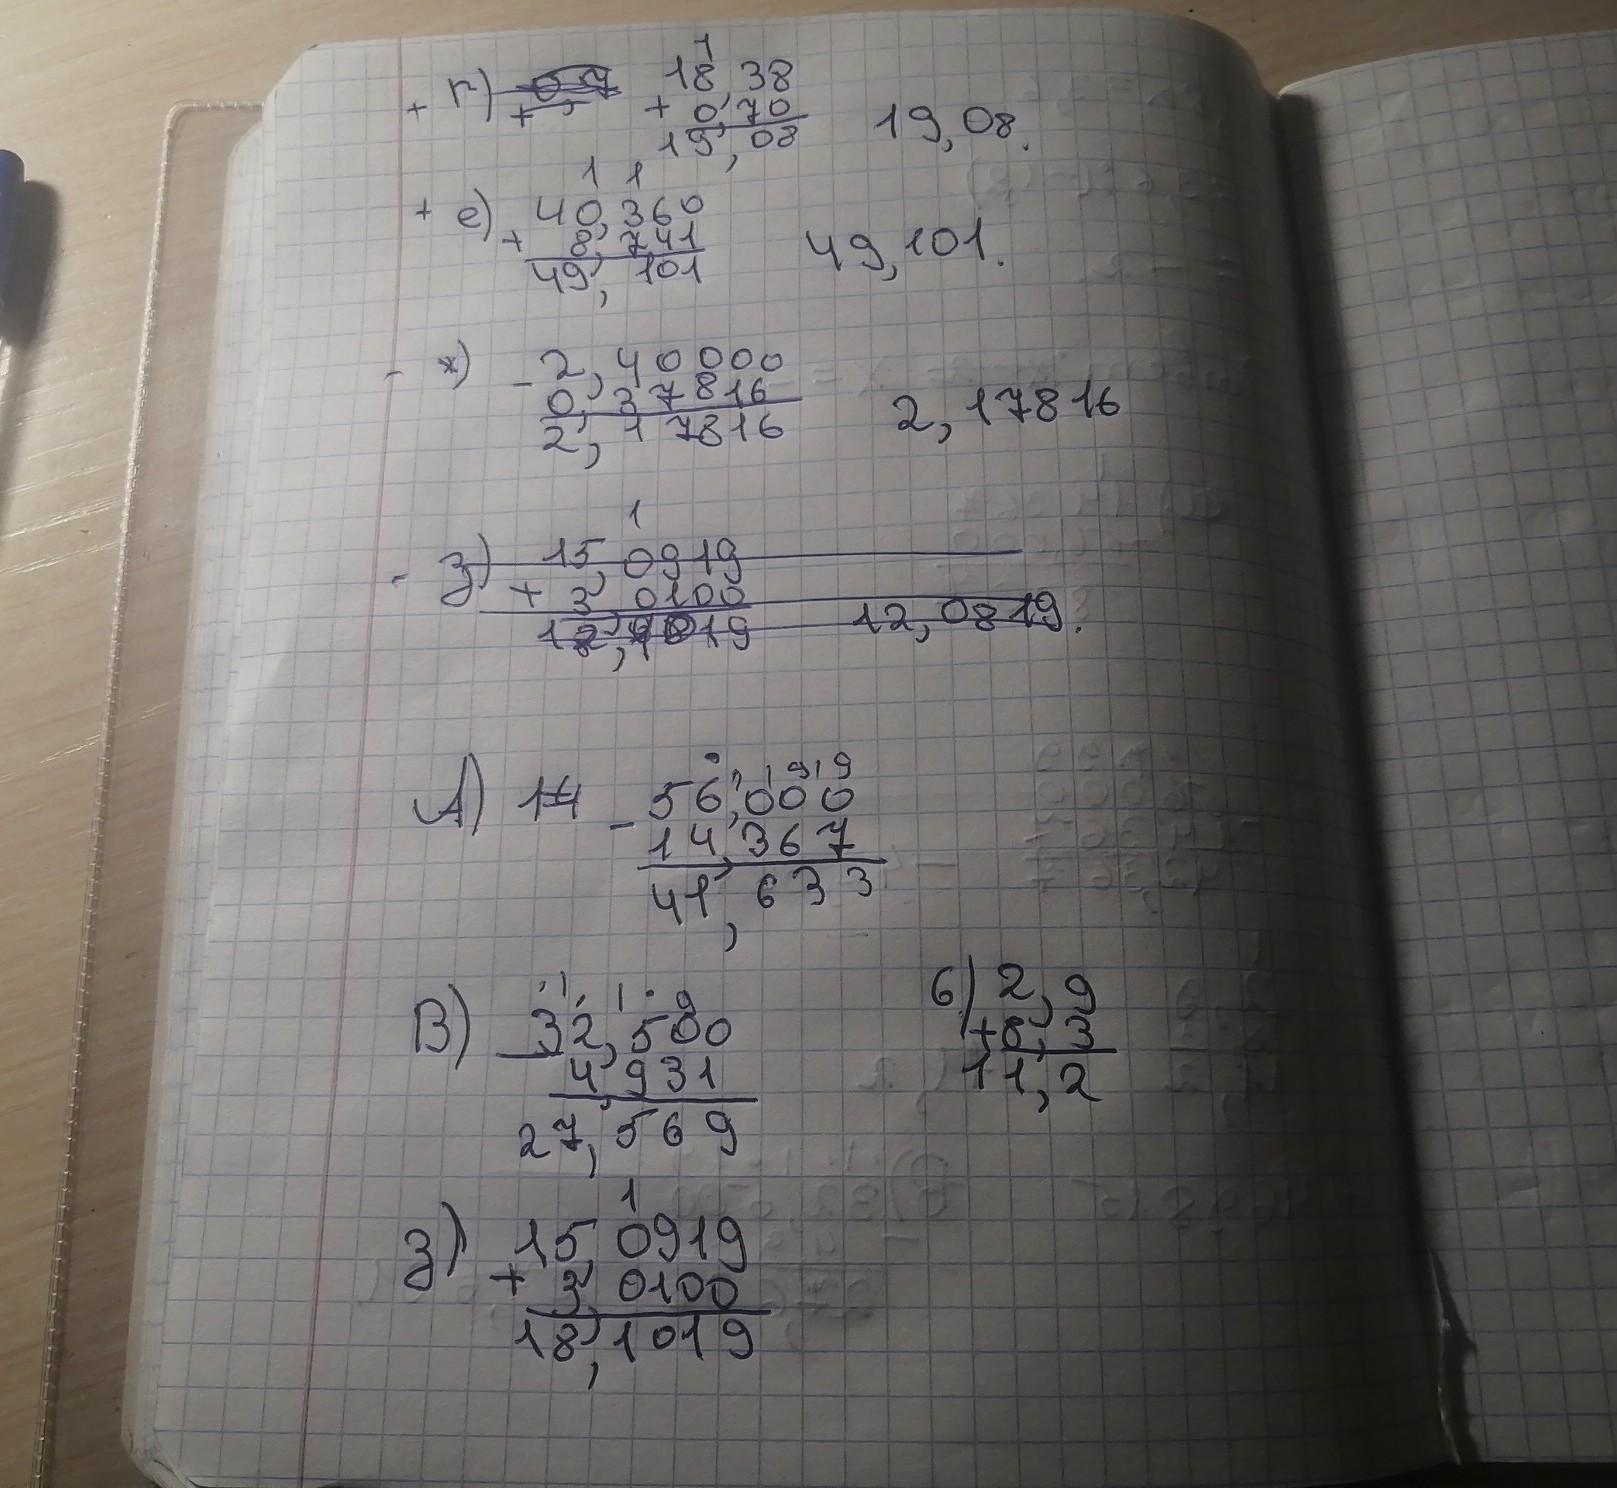 1
+ г) 18,38
+ 0,70
19,08 19,08.
1 1
+ е) 40,360
+ 8,741
49,101 49,101.
- ж) - 2,40000
0,37816
2,17816 2,17816
1
- з) 15,0919
+ 3,0100
12,1019 12,0819.
9 9
А) 14 - 56,000
14,367
41,633
1 1 9
В) 32,500
4,931
27,569
б) 2,9
+8,3
11,2
1
з) 15,0919
+ 3,0100
18,1019